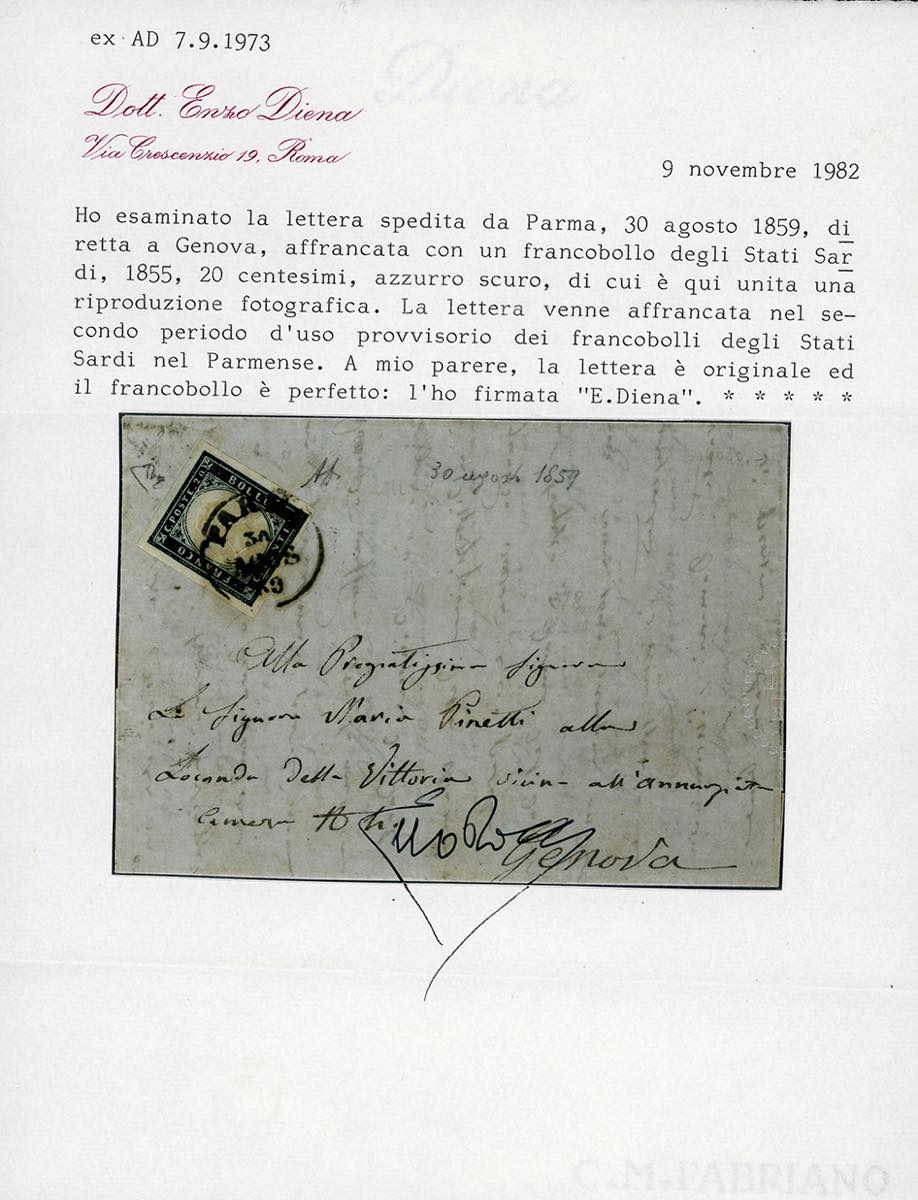 ex AD 7.9.1973
Diena
Dott. Enzo Diena
Via Crescenzio 19, Roma
9 novembre 1982
Ho esaminato la lettera spedita da Parma, 30 agosto 1859, di
retta a Genova, affrancata con un francobollo degli Stati Sar
di, 1855, 20 centesimi, azzurro scuro, di cui è qui unita una
riproduzione fotografica. La lettera venne affrancata nel se-
condo periodo d'uso provvisorio dei francobolli degli Stati
Sardi nel Parmense. A mio parere, la lettera è originale ed
il francobollo è perfetto: l'ho firmata "E.Diena". * * * * *
30 agosto 1859
C.POSTE 20
BOLLO
FRANCO
PAR
30
59
Alla Pregiatissima Signora
La Signora Maria Pinetti alla
Locanda della Vittoria vicina all'annunziata
camera
Genova
C.M.FABRIANO